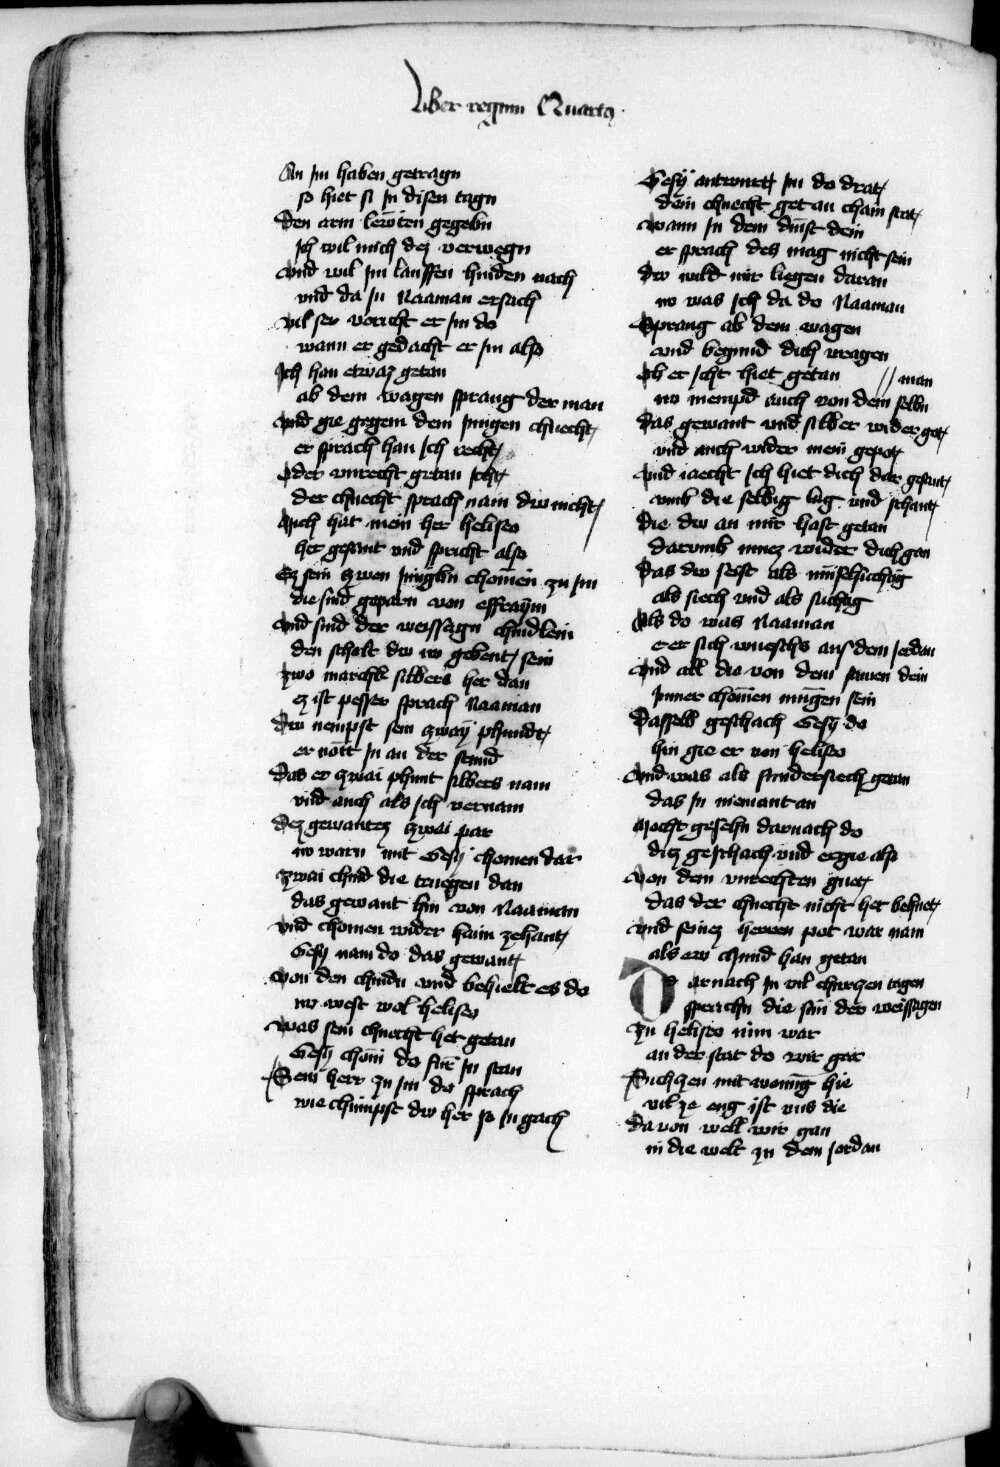 Liber regum Quartus
An im haben getragn
so hiet si in disen tagn
Den arm lewten gegebn
ich wil mich dez verwegn
Vnd wil im lauffen hinden nach
vnd da in Naaman ersach
Vil ser voricht er im do
wann er gedacht er im also
Ich han etwaz getan
ab dem wagen sprang der man
Vnd gie gegem dem jungen chnecht
er sprach han ich recht
Oder vnrecht getan icht
der chnecht sprach nain dw nicht
Auch hat mein her heliseo
her gesant vnd spricht also
Ez sein zwen jungln chomen zu im
die sind geparn von effraym
Vnd sind der weissagn chindlein
den scholt dw nv gebent sein
Zwo marchk silbers her dan
ez ist pesser sprach Naaman
Dw nempst sein zway phundt
er nott in an der stund
Das er zwai phunt silbers nam
vnd auch als ich vernam
Dez gewantez zwai par
nv warn mit Gesy chomen dar
Zwai chind die truegen dan
das gewant hin von Naaman
Vnd chomen wider haim zehant
Gesy nam do das gewant
Von den chindn vnd behielt es do
nv west wol heliseo
Was sein chnecht het getan
Gesy chom do für in stan
Sein herr zu im do sprach
wie chimpst dw her so in gach
Gesy antwurt im do drat
dein chnecht get an chain stat
Wann in dem dinst dein
er sprach des mag nicht sein
Dw wild mir liegen daran
nv was ich da do Naaman
Sprang ab dem wagen
vnd begund dich vragen
Ob er icht hiet getan // man
nv nempd auch von dem selbn
Das gewant vnd silber wider got
vnd auch wider mein gepot
Vnd iaecht ich hiet dich dar gesant
vmb die selbig lug vnd schant
Die dw an mir hast getan
darumb muez wider dich gan
Das dw seist als
als siech vnd als suchtig
Als do was Naaman
e er sich wueschs aus dem jordan
Vnd all die von dem samen dein
jmmer chomen mugen sein
Dasselb geschach Gesy do
hin gie er von heliseo
Vnd was als sundersiech getan
das in niemant an
Mocht gesehn darnach do
diz geschach vnd ergie also
Von dem vnrechten guet
das der chnecht nicht het behuet
Vnd seinez herren pot war nam
als ew chund han getan
Darnach in vil churczen tagen
sprachn die sün der weissagen
Zu heliseo nim war
an der stat do wir gar
Siczzen mit wonung hie
vil ze eng ist vns die
Da von well wir gan
in die welt zu dem jordan